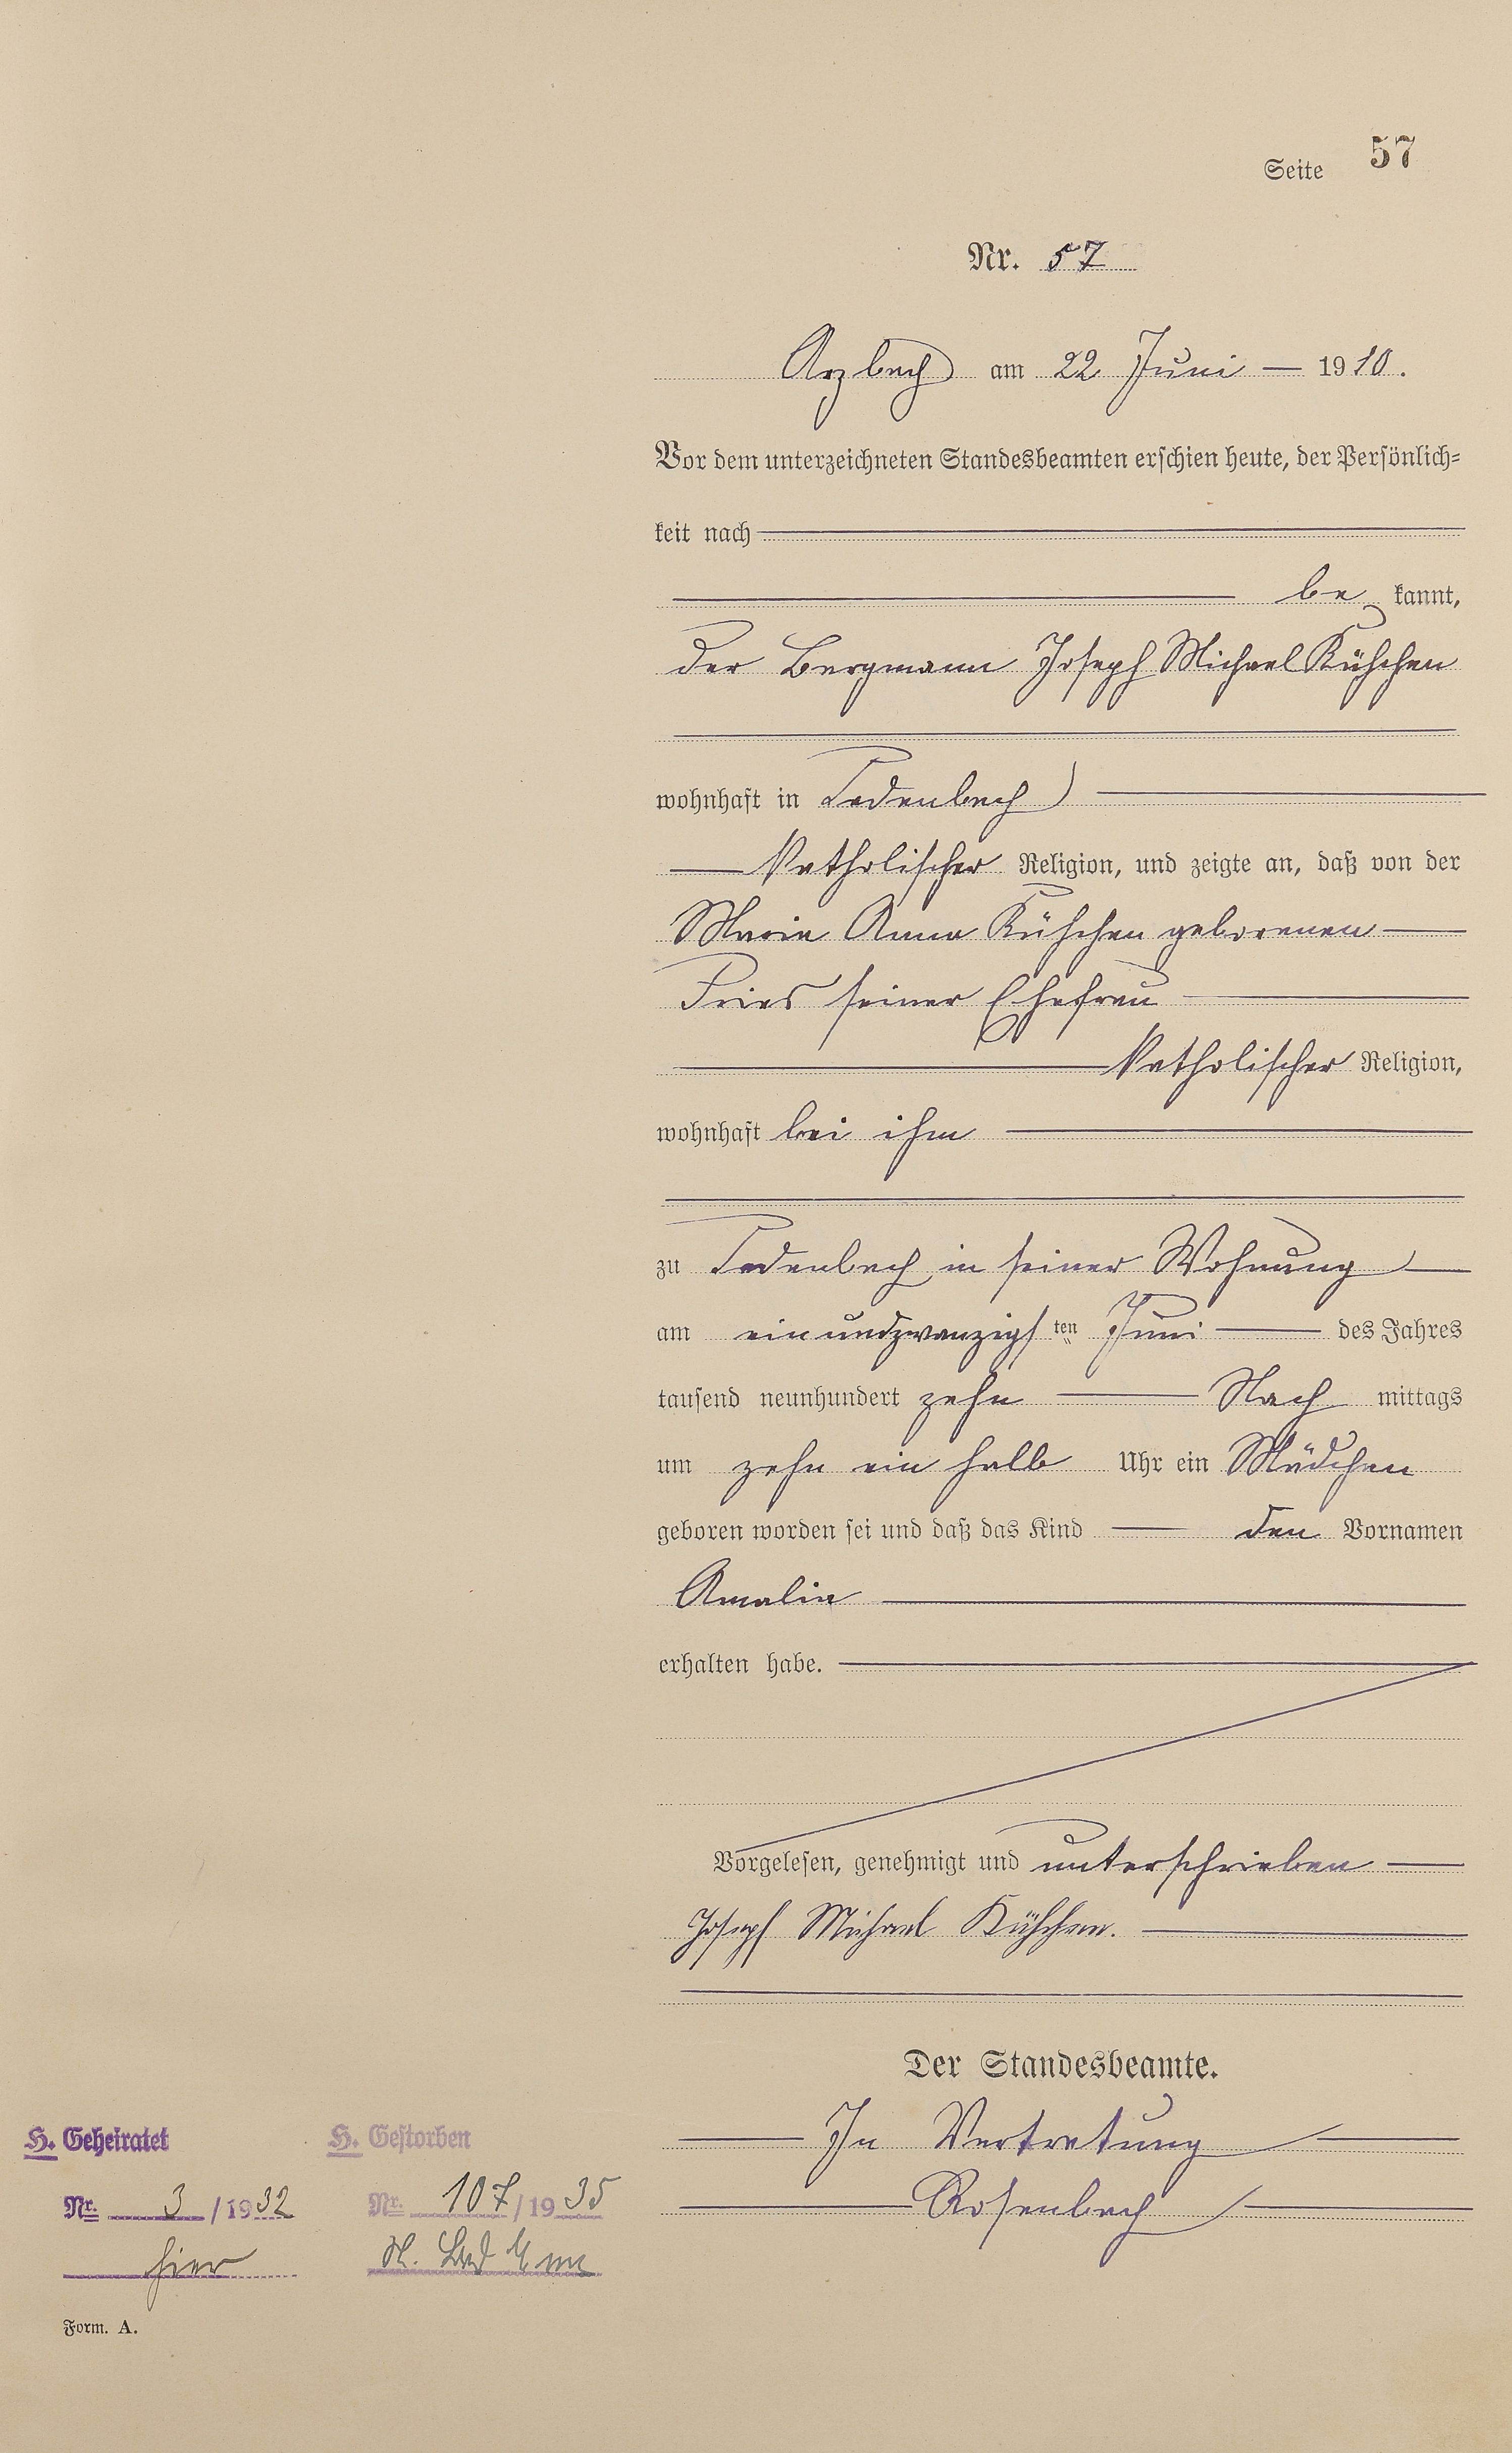 Seite 57
Nr. 57
Arzbach am 22 Juni — 1910.
Vor dem unterzeichneten Standesbeamten erschien heute, der Persönlich=
keit nach
be kannt,
der Bergmann Joseph Michael Kühchen
wohnhaft in Cadenbach
— katholischer Religion, und zeigte an, daß von der
Maria Anna Kühchen geborenen —
Fries seiner Ehefrau —
— katholischer Religion,
wohnhaft bei ihm —
zu Cadenbach in seiner Wohnung —
am einundzwanzigsten Juni — des Jahres
tausend neunhundert zehn — Nach mittags
um zehn ein halb Uhr ein Mädchen
geboren worden sei und daß das Kind — den Vornamen
Amalia —
erhalten habe. —
Vorgelesen, genehmigt und unterschrieben —
Joseph Michael Kühchen. —
Der Standesbeamte.
— In Vertretung —
— Rosenbach —
H. Geheiratet
Nr. 3 / 1932
hier
H. Gestorben
Nr. 107 / 1935
St. Bad Ems
Form. A.